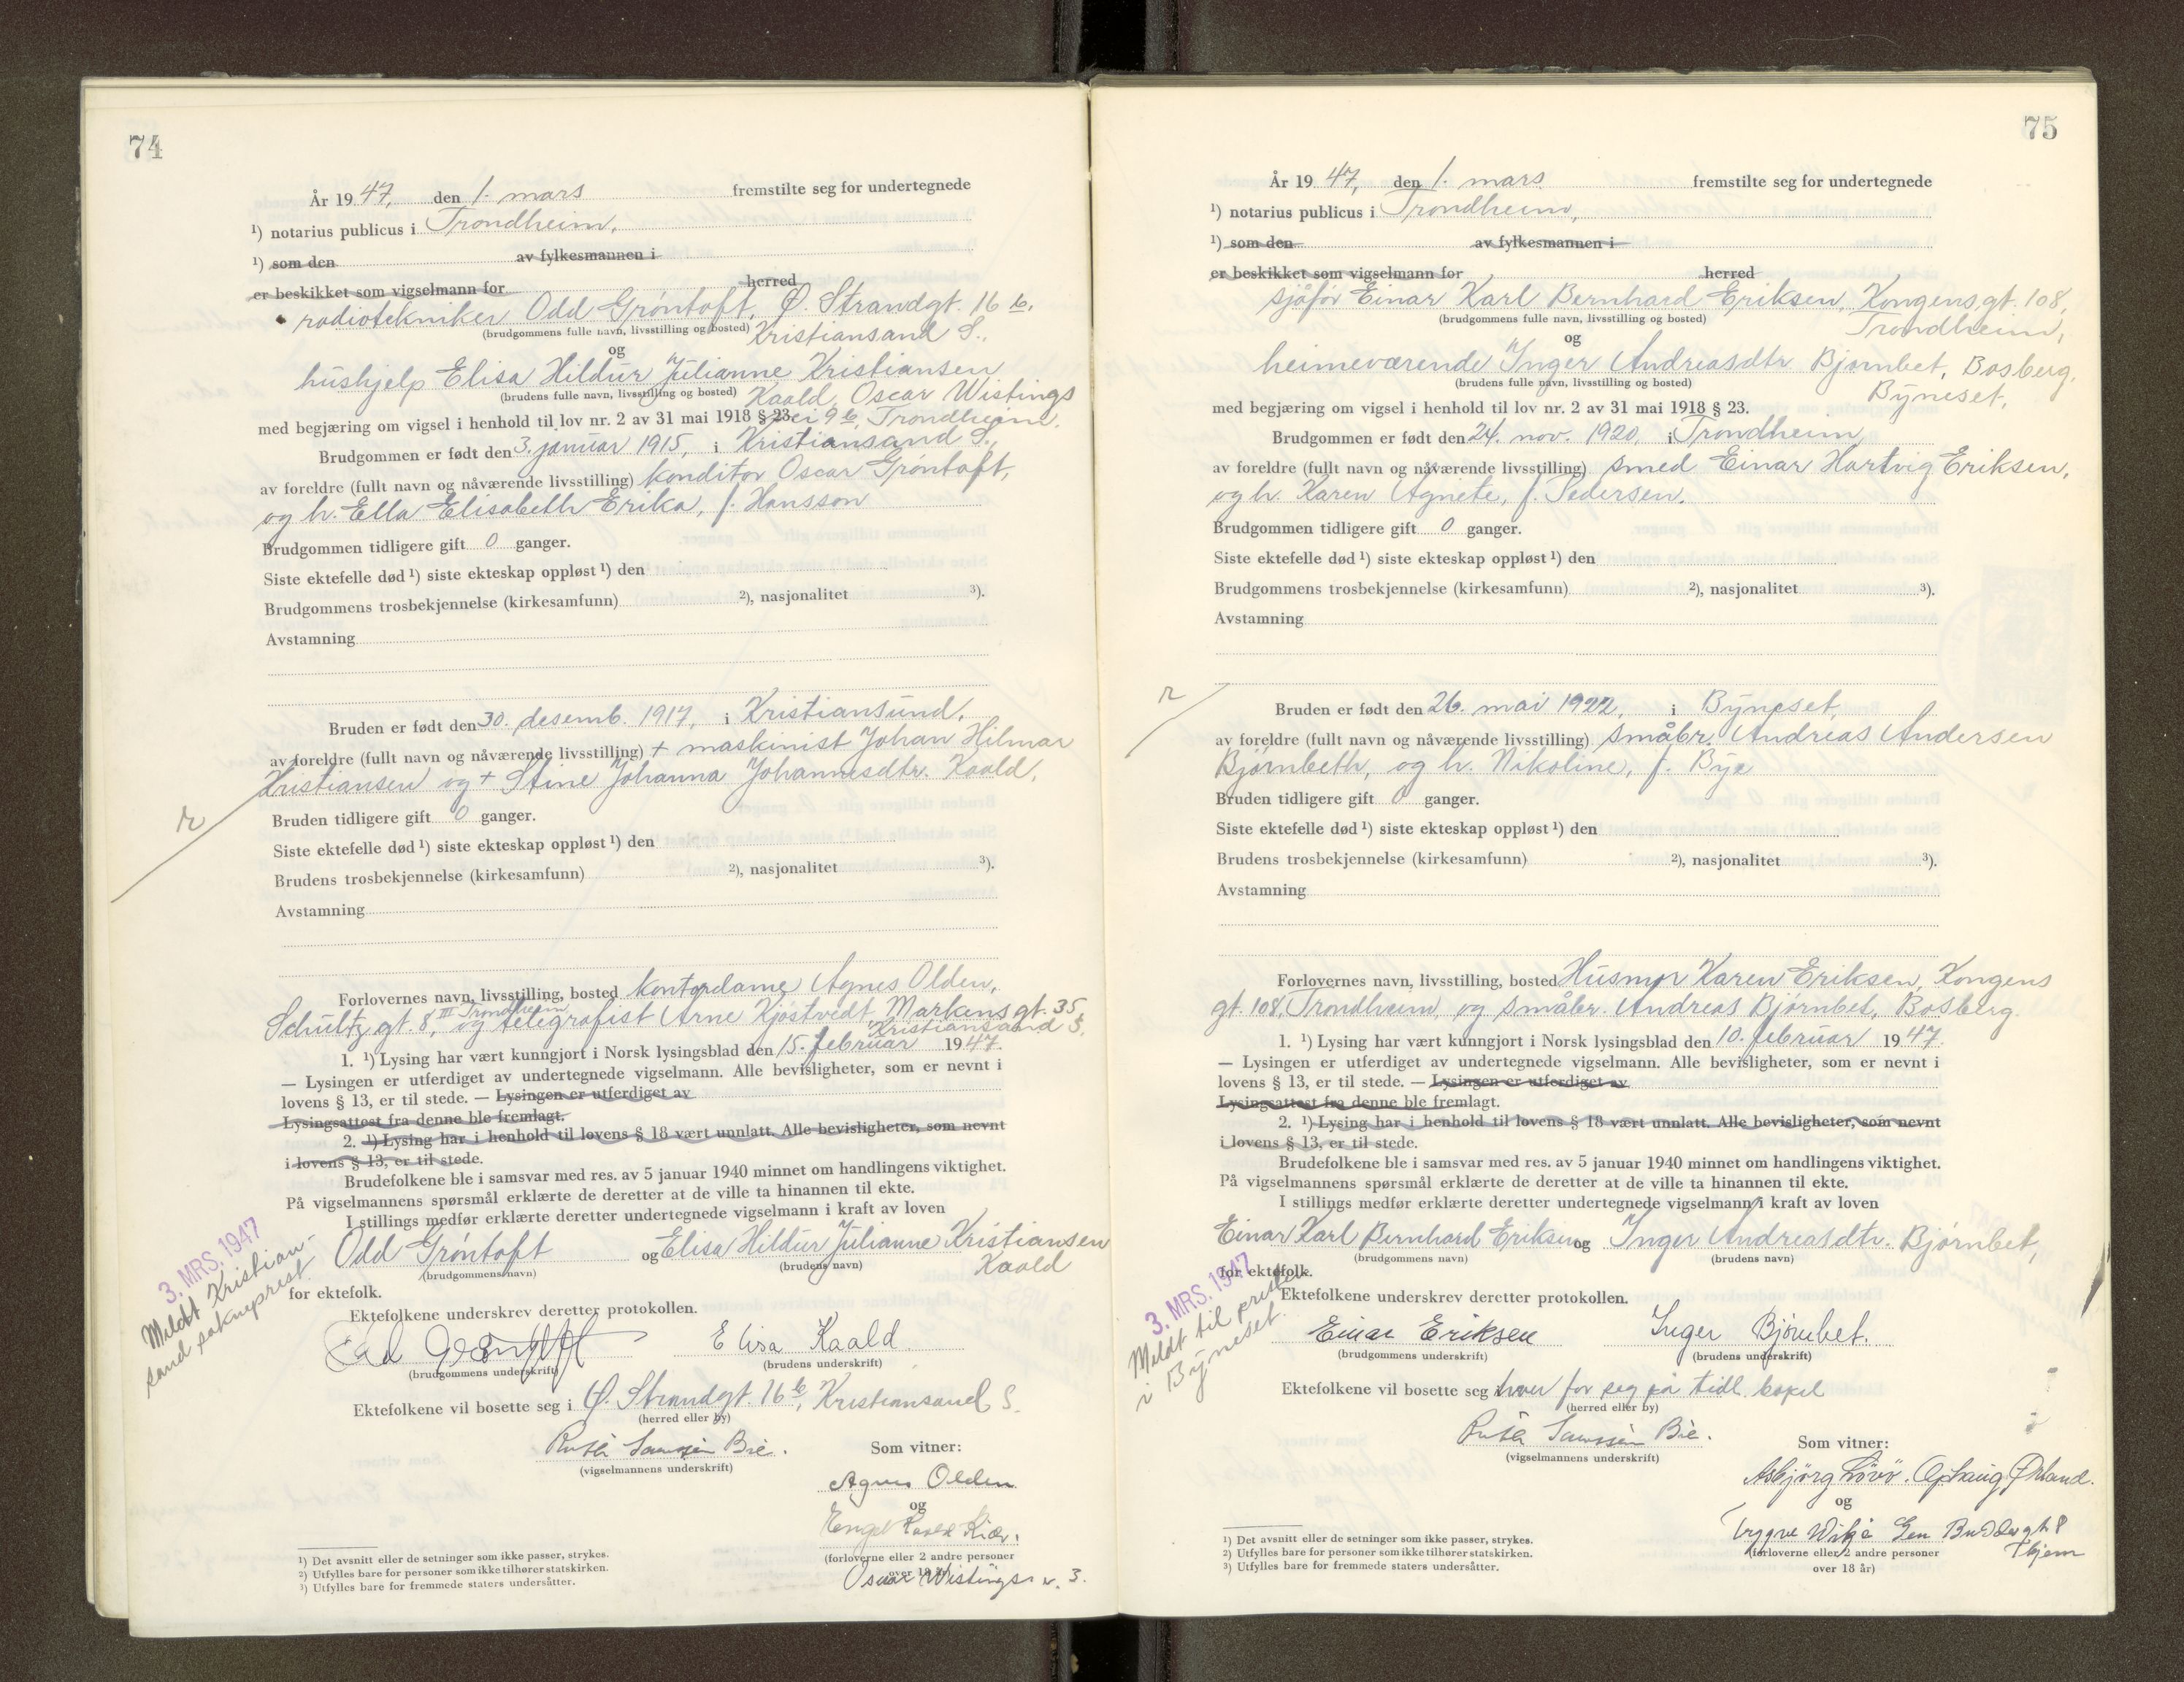 74
År 19 47, den 1. mars fremstilte seg for undertegnede
¹) notarius publicus i Trondheim,
¹) som den av fylkesmannen i
er beskikket som vigselmann for herred
radiotekniker Odd Grøntoft, Ø. Strandgt. 16 b,
(brudgommens fulle navn, livsstilling og bosted) Kristiansand S.,
og
hushjelp Elisa Hildur Julianne Kristiansen
(brudens fulle navn, livsstilling og bosted) Kaald, Oscar Wistings
med begjæring om vigsel i henhold til lov nr. 2 av 31 mai 1918 § 23. vei 9 b, Trondheim.
Brudgommen er født den 3. januar 1915, i Kristiansand S.,
av foreldre (fullt navn og nåværende livsstilling) konditor Oscar Grøntoft,
og h. Ella Elisabeth Erika, f. Hansson
Brudgommen tidligere gift 0 ganger.
Siste ektefelle død ¹) siste ekteskap oppløst ¹) den
Brudgommens trosbekjennelse (kirkesamfunn) ²), nasjonalitet ³).
Avstamning
Bruden er født den 30. desemb. 1917, i Kristiansund,
av foreldre (fullt navn og nåværende livsstilling) + maskinist Johan Hilmar
Kristiansen og + Stine Johanna Johannesdtr. Kaald,
r
Bruden tidligere gift 0 ganger.
Siste ektefelle død ¹) siste ekteskap oppløst ¹) den
Brudens trosbekjennelse (kirkesamfunn) ²), nasjonalitet ³).
Avstamning
Forlovernes navn, livsstilling, bosted kontordame Agnes Olden,
Schultz gt. 8, III Trondheim, og telegrafist Arne Kjøstvedt, Markens gt. 35,
Kristiansand S.
1. ¹) Lysing har vært kunngjort i Norsk lysingsblad den 15. februar 19 47.
— Lysingen er utferdiget av undertegnede vigselmann. Alle bevisligheter, som er nevnt i
lovens § 13, er til stede. — Lysingen er utferdiget av
Lysingsattest fra denne ble fremlagt.
2. ¹) Lysing har i henhold til lovens § 18 vært unnlatt. Alle bevisligheter, som nevnt
i lovens § 13, er til stede.
Brudefolkene ble i samsvar med res. av 5 januar 1940 minnet om handlingens viktighet.
På vigselmannens spørsmål erklærte de deretter at de ville ta hinannen til ekte.
I stillings medfør erklærte deretter undertegnede vigselmann i kraft av loven
Odd Grøntoft og Elisa Hildur Julianne Kristiansen
(brudgommens navn) (brudens navn) Kaald
for ektefolk.
3. MRS. 1947
Meldt Kristian-
sand sokneprest
Ektefolkene underskrev deretter protokollen.
Odd Grøntoft Elisa Kaald
(brudgommens underskrift) (brudens underskrift)
Ektefolkene vil bosette seg i Ø. Strandgt. 16 b, Kristiansand S.
(herred eller by)
Ruth Bie.
(vigselmannens underskrift)
Som vitner:
Agnes Olden
og
Kaald
(forloverne eller 2 andre personer
over 18 år)
Oscar Wistings v. 3.
¹) Det avsnitt eller de setninger som ikke passer, strykes.
²) Utfylles bare for personer som ikke tilhører statskirken.
³) Utfylles bare for fremmede staters undersåtter.
75
År 19 47, den 1. mars fremstilte seg for undertegnede
¹) notarius publicus i Trondheim,
¹) som den av fylkesmannen i
er beskikket som vigselmann for herred
sjåfør Einar Karl Bernhard Eriksen, Kongens gt. 108,
(brudgommens fulle navn, livsstilling og bosted) Trondheim,
og
heimeværende Inger Andreasdtr Bjørnbet, Bosberg,
(brudens fulle navn, livsstilling og bosted) Byneset,
med begjæring om vigsel i henhold til lov nr. 2 av 31 mai 1918 § 23.
Brudgommen er født den 24. nov. 1920, i Trondheim
av foreldre (fullt navn og nåværende livsstilling) smed Einar Hartvig Eriksen,
og h. Karen Agnete, f. Pedersen.
Brudgommen tidligere gift 0 ganger.
Siste ektefelle død ¹) siste ekteskap oppløst ¹) den
Brudgommens trosbekjennelse (kirkesamfunn) ²), nasjonalitet ³).
Avstamning
r
Bruden er født den 26. mai 1922, i Byneset,
av foreldre (fullt navn og nåværende livsstilling) småbr. Andreas Andersen
Bjørnbeth, og h. Nikoline, f. Bye
Bruden tidligere gift 0 ganger.
Siste ektefelle død ¹) siste ekteskap oppløst ¹) den
Brudens trosbekjennelse (kirkesamfunn) ²), nasjonalitet ³).
Avstamning
Forlovernes navn, livsstilling, bosted Husmor Karen Eriksen, Kongens
gt. 108, Trondheim, og småbr. Andreas Bjørnbet, Bosberg.
1. ¹) Lysing har vært kunngjort i Norsk lysingsblad den 10. februar 19 47.
— Lysingen er utferdiget av undertegnede vigselmann. Alle bevisligheter, som er nevnt i
lovens § 13, er til stede. — Lysingen er utferdiget av
Lysingsattest fra denne ble fremlagt.
2. ¹) Lysing har i henhold til lovens § 18 vært unnlatt. Alle bevisligheter, som nevnt
i lovens § 13, er til stede.
Brudefolkene ble i samsvar med res. av 5 januar 1940 minnet om handlingens viktighet.
På vigselmannens spørsmål erklærte de deretter at de ville ta hinannen til ekte.
I stillings medfør erklærte deretter undertegnede vigselmann i kraft av loven
Einar Karl Bernhard Eriksen og Inger Andreasdtr. Bjørnbet,
(brudgommens navn) (brudens navn)
for ektefolk.
3. MRS. 1947
Meldt til presten
i Byneset.
Ektefolkene underskrev deretter protokollen.
Einar Eriksen Inger Bjørnbet.
(brudgommens underskrift) (brudens underskrift)
Ektefolkene vil bosette seg hver for seg på tidl. bopel
(herred eller by)
Ruth Bie.
(vigselmannens underskrift)
Som vitner:
Asbjörg Lövö. Ophaug Ørland.
og
Trygve Gen Buddes gt 8
(forloverne eller 2 andre personer Thjem
over 18 år)
¹) Det avsnitt eller de setninger som ikke passer, strykes.
²) Utfylles bare for personer som ikke tilhører statskirken.
³) Utfylles bare for fremmede staters undersåtter.